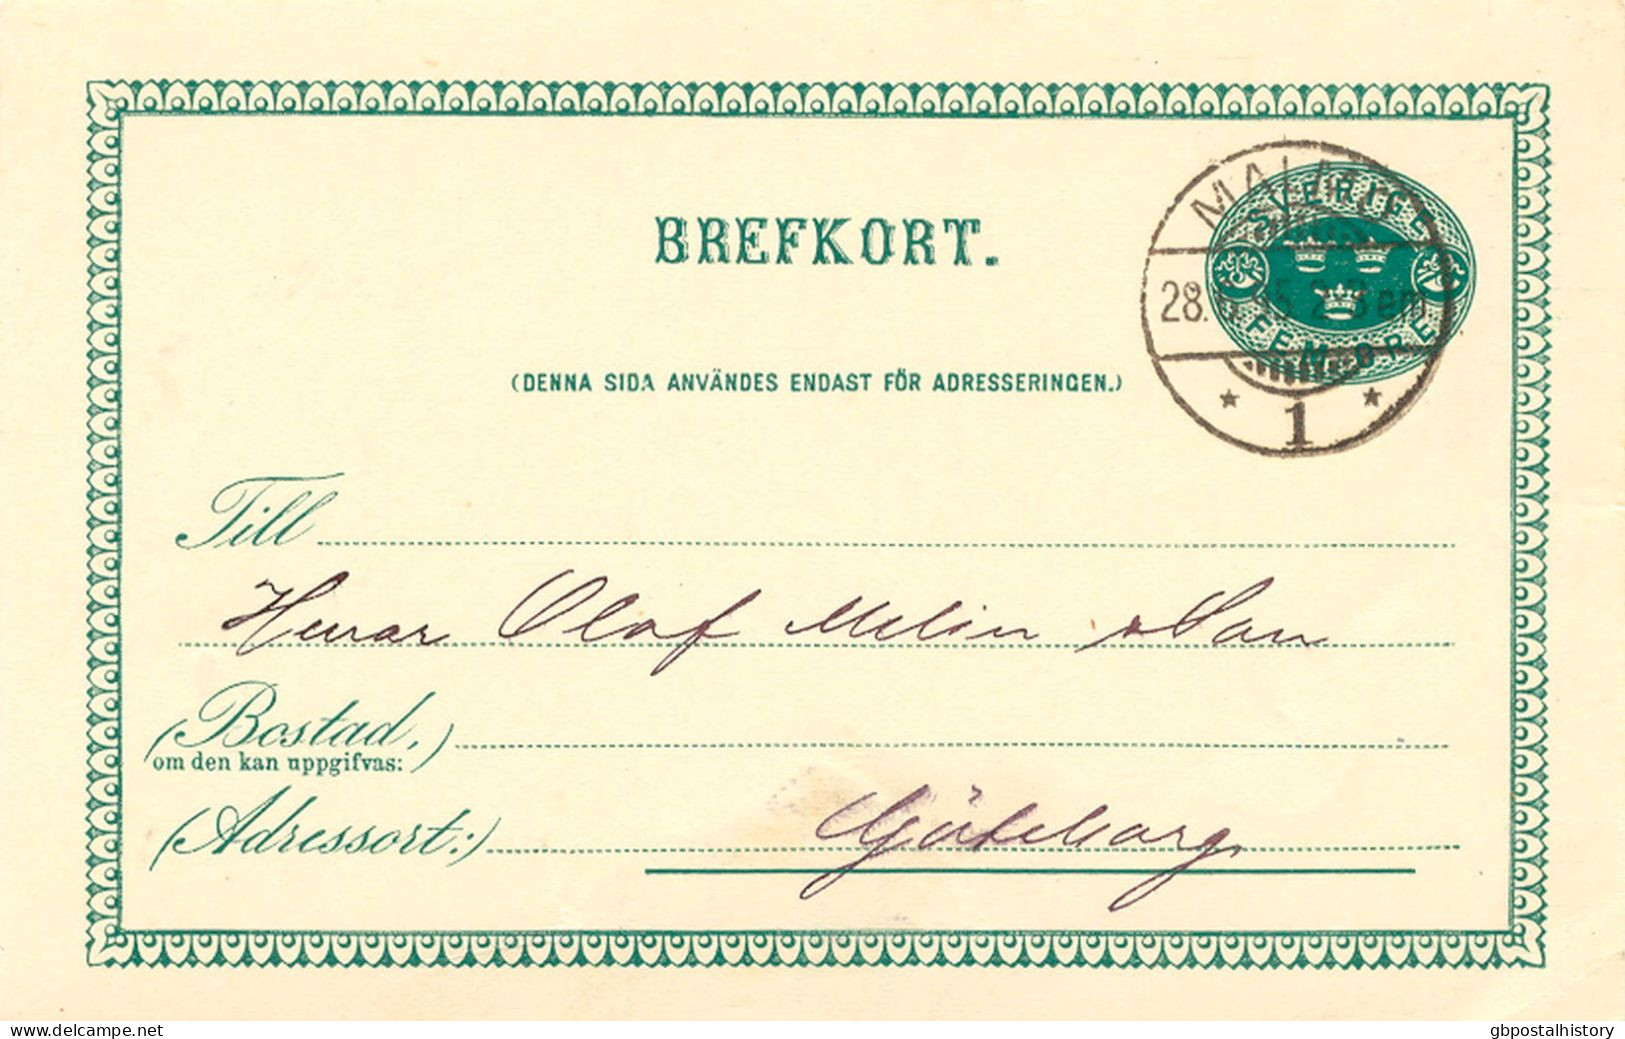 BREFKORT.
SVERIGE
FEM ÖRE
28. 2-3 em
1
(DENNA SIDA ANVÄNDES ENDAST FÖR ADRESSERINGEN.)
Till
Herrar Olof Melin & Son
(Bostad,)
om den kan uppgifvas:
(Adressort:)
Göteborg
www.delcampe.net
gbpostalhistory